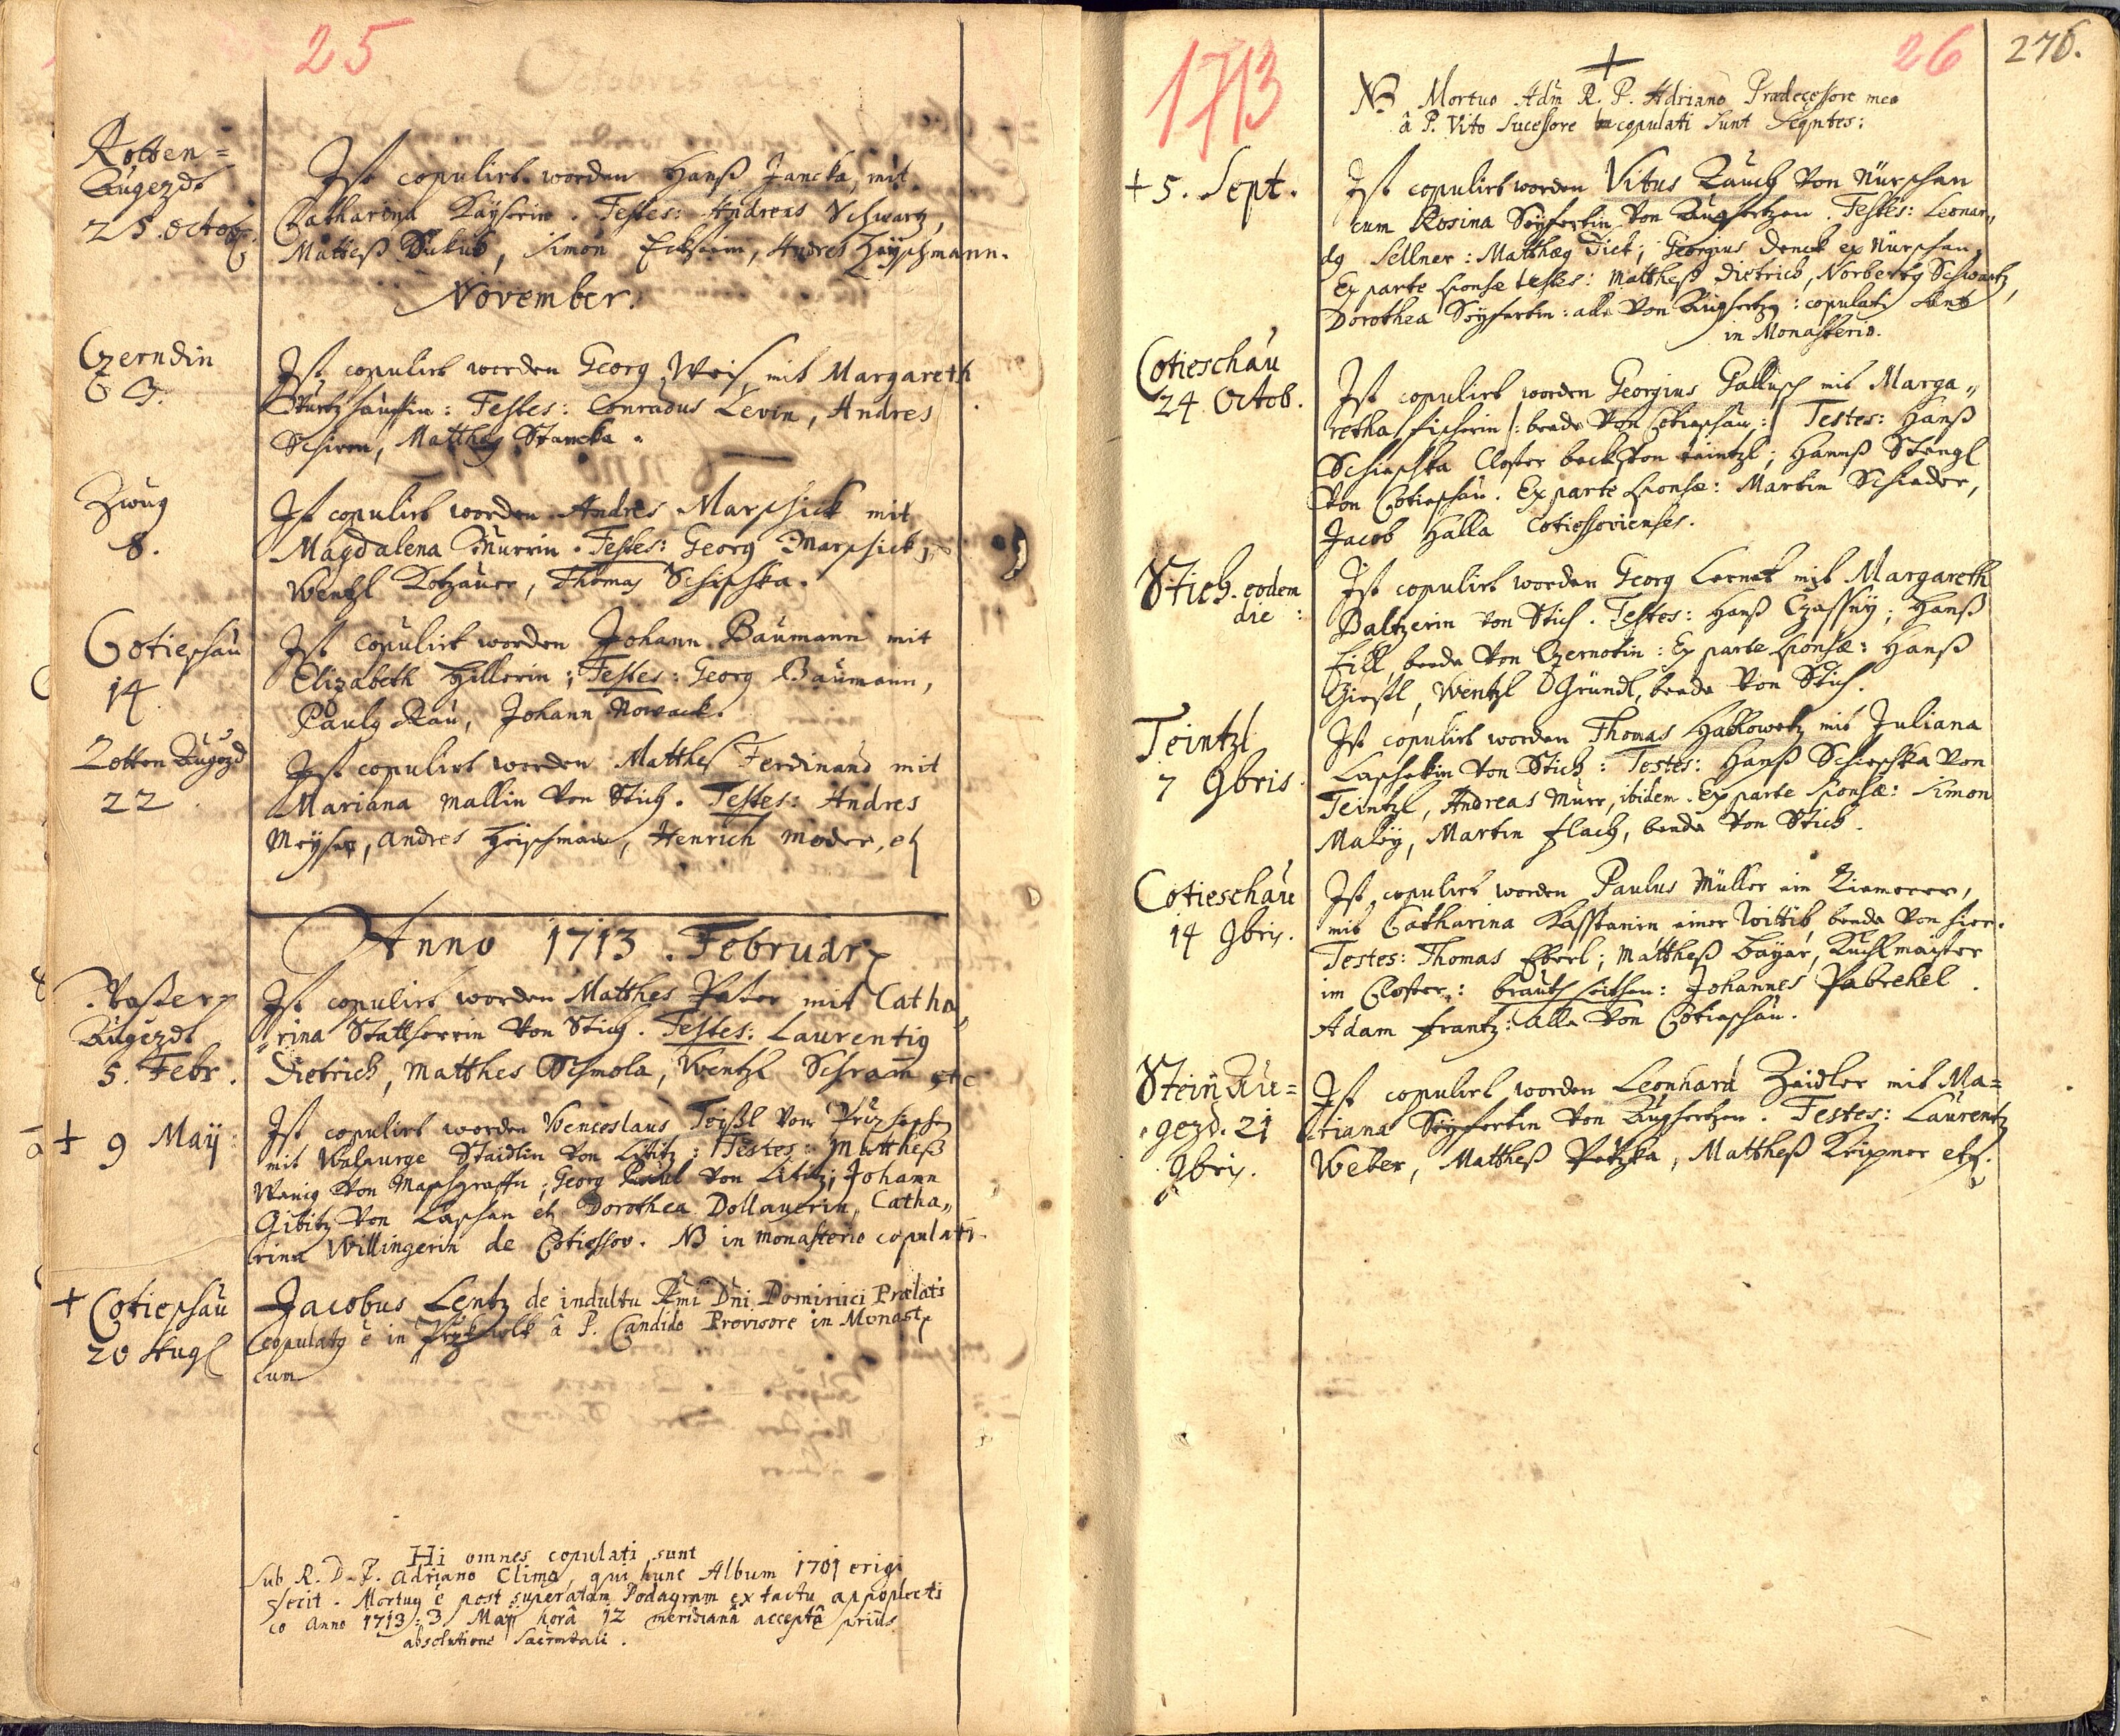 25
Rotten=
Augezdt
25. Octob.
Ist copulirt worden Hanß Jancka, mit
Catharina Kayserin. Testes: Andreas Schwartz,
Mattheß Simon Andres
November.
Czerndin
3.
Ist copulirt worden Georg Weis mit Margareth
Testes: Conradus Levin, Andres
Schirm, Matthæg Stancka.
Zwug
8.
Ist copulirt worden Andres Marschick mit
Magdalena Murrin. Testes: Georg Marschick,
Wentzl Kotzauer, Thomas Schischka.
Cotieschau
14.
Ist copulirt worden Johann Baumann mit
Elizabeth Hillerin; Testes: Georg Baumann,
Paulg Rau, Johann Nowack.
Rotten Augezd
22.
Ist copulirt worden Matthes Ferdinand mit
Mariana Mallin von Stich. Testes: Andres
Meyser, Andres Henrich Moder, etc
Anno 1713. Februar.
Augezdt
5. Febr.
Ist copulirt worden Matthes Pater mit Catha„
„rina von Stich. Testes: Laurentig
Dietrich, Matthes Schmola, Wentzl Schram̄ etc
+ 9 Maÿ:
Ist copulirt worden Wenceslaus Teißl von
mit Walpurge Staidlin von Lititz: Testes: Mattheß
Wanig von Georg von Lititz; Johann
Gibitz von Laschan et Dorothea Dollauerin, Catha„
rina Willingerin de Cotiessov. NB in monasterio copulati.
+ Cotieschau
20 Aug
Jacobus Lentz de indultu Rmi Dni Dominici Prælati
copulatg è in â P. Candido Provisore in Monast
cum
Hi omnes copulati sunt
sub R. D. P. Adriano Clima, qui hunc Album 1701 erigi
fecit. Mortug è post superatam Podagram ex tactu appoplecti
co Anno 1713: 3 Maÿ horâ 12 meridianâ acceptâ priùs
absolutione Sacrmtali.
1713
26
276.
+
NB Mortuo Adm R. P. Adriano Prædecessore meo
â P. Vito Sucessore copulati sunt Seqntes:
+ 5. Sept.
Ist copulirt worden Vitus Rauch von Nürschan
cum Rosina Seyfertin von Augsertzen. Testes: Leonar„
dg Sellner: Matthæg Dick; Georgius Denck ex Nürschan;
Ex parte sponsæ testes: Mattheß Dietrich, Norbertg Schwartz,
Dorothea Seyfertin: alle von copulati sunt
in Monasterio.
Cotieschau
24 Octob.
Ist copulirt worden Georgius Gallusch mit Marga„
retha Fischerin /: beede von Cotieschau :/ Testes: Hanß
Schischka Closter beck von teintzl; Hannß Stengl
von Cotieschau. Ex parte sponsæ: Martin Schieder,
Jacob Halla Cotiessovienses.
Stich. eodem
die:
Ist copulirt worden Georg Lernet mit Margareth
Baltzerin von Stich. Testes: Hanß Czassny; Hanß
Fill, beede von Czernotin: Ex parte sponsæ: Hanß
Giestl, Wentzl Gründl, beede von Stich.
Teintzl
7 9bris.
Ist copulirt worden Thomas Hablowetz mit Juliana
Laschekin von Stich: Testes: Hanß Schischka von
Teintzl, Andreas Murr, ibidem. Ex parte sponsæ: Simon
Malÿ, Martin Flach, beede von Stich.
Cotieschau
14 9bris.
Ist copulirt worden Paulus Müller ein
mit Catharina Kasstanin einer Wittib, beede von hier.
Testes: Thomas Eberl; Mattheß Bayär, Kuchlmaister
im Closter: brauth seithen: Johannes Pabrehel.
Adam Frantz: alle von Cotieschau.
Stein Au=
gezd. 21
9bris.
Ist copulirt worden Leonhard Zeidler mit Ma=
riana Seyfertin von Augsertzen. Testes: Laurentz
Weber, Mattheß Petzka, Mattheß Kripner etc.